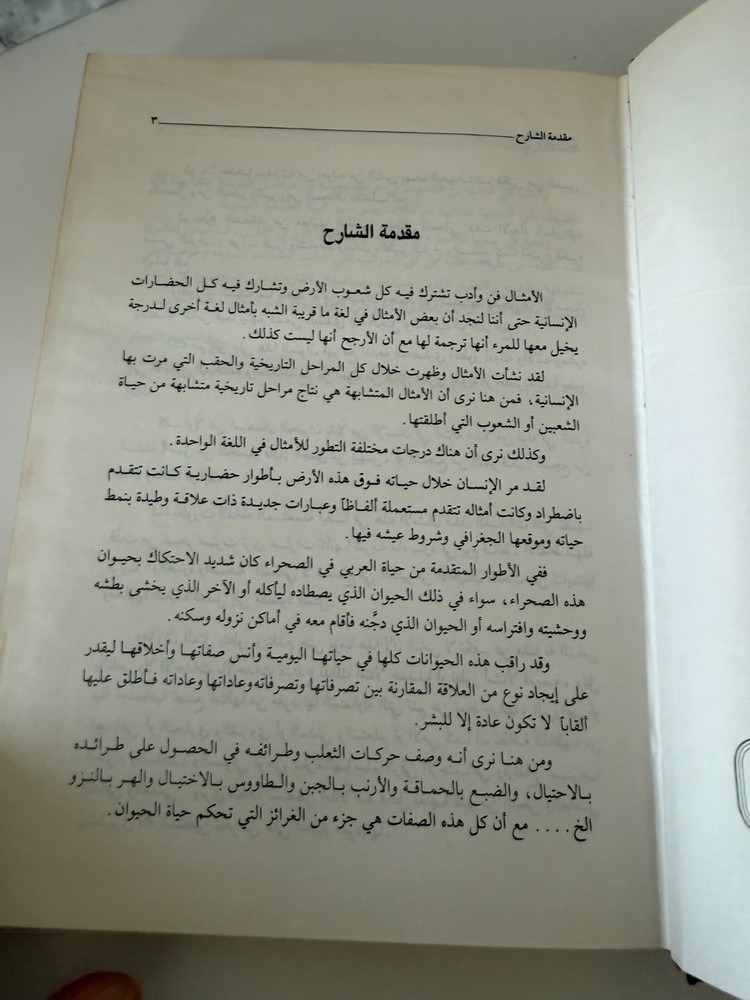 مقدمة الشارح ٣
مقدمة الشارح
الأمثال فن وأدب تشترك فيه كل شعوب الأرض وتشارك فيه كل الحضارات
الإنسانية حتى أننا لنجد أن بعض الأمثال في لغة ما قريبة الشبه بأمثال لغة أخرى لدرجة
يخيل معها للمرء أنها ترجمة لها مع أن الأرجح أنها ليست كذلك.
لقد نشأت الأمثال وظهرت خلال كل المراحل التاريخية والحقب التي مرت بها
الإنسانية، فمن هنا نرى أن الأمثال المتشابهة هي نتاج مراحل تاريخية متشابهة من حياة
الشعبين أو الشعوب التي أطلقتها.
وكذلك نرى أن هناك درجات مختلفة التطور للأمثال في اللغة الواحدة.
لقد مر الإنسان خلال حياته فوق هذه الأرض بأطوار حضارية كانت تتقدم
باضطراد وكانت أمثاله تتقدم مستعملة ألفاظاً وعبارات جديدة ذات علاقة وطيدة بنمط
حياته وموقعها الجغرافي وشروط عيشه فيها.
ففي الأطوار المتقدمة من حياة العربي في الصحراء كان شديد الاحتكاك بحيوان
هذه الصحراء، سواء في ذلك الحيوان الذي يصطاده ليأكله أو الآخر الذي يخشى بطشه
ووحشيته وافتراسه أو الحيوان الذي دجَّنه فأقام معه في أماكن نزوله وسكنه.
وقد راقب هذه الحيوانات كلها في حياتها اليومية وأنس صفاتها وأخلاقها ليقدر
على إيجاد نوع من العلاقة المقارنة بين تصرفاتها وتصرفاته وعاداتها وعاداته فأطلق عليها
ألقاباً لا تكون عادة إلا للبشر.
ومن هنا نرى أنه وصف حركات الثعلب وطرائفه في الحصول على طرائده
بالاحتيال، والضبع بالحماقة والأرنب بالجبن والطاووس بالاختيال والهر بالنزو
الخ.... مع أن كل هذه الصفات هي جزء من الغرائز التي تحكم حياة الحيوان.